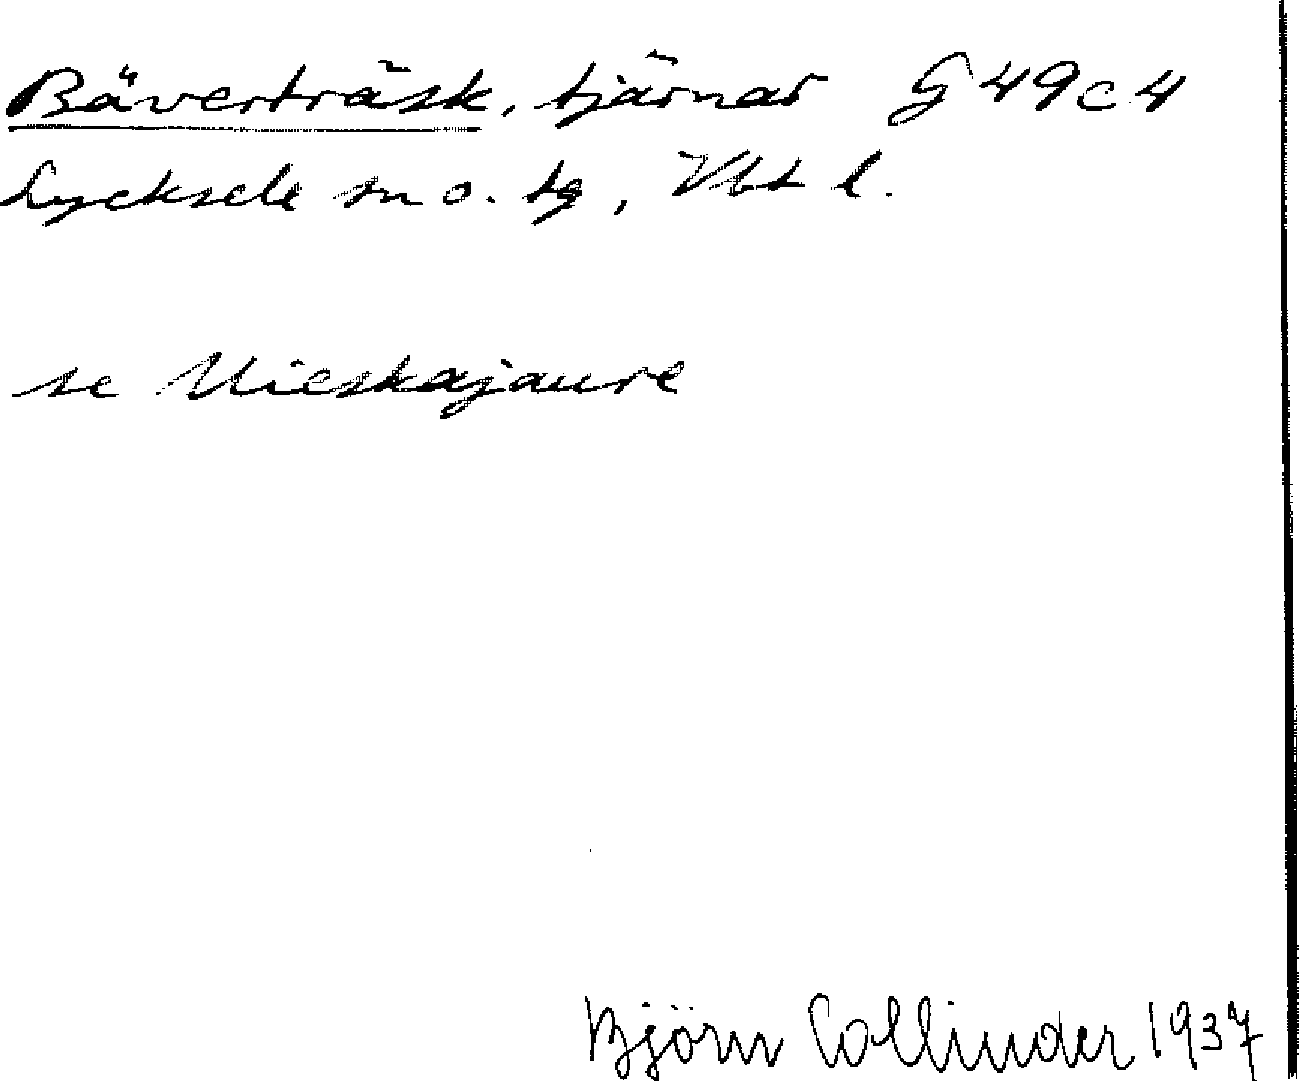 Bäverträsk, tjärnar G 49 c 4
Lycksele sn o. tg, Vbt l.
se Uieskajaure
Björn Collinder 1937